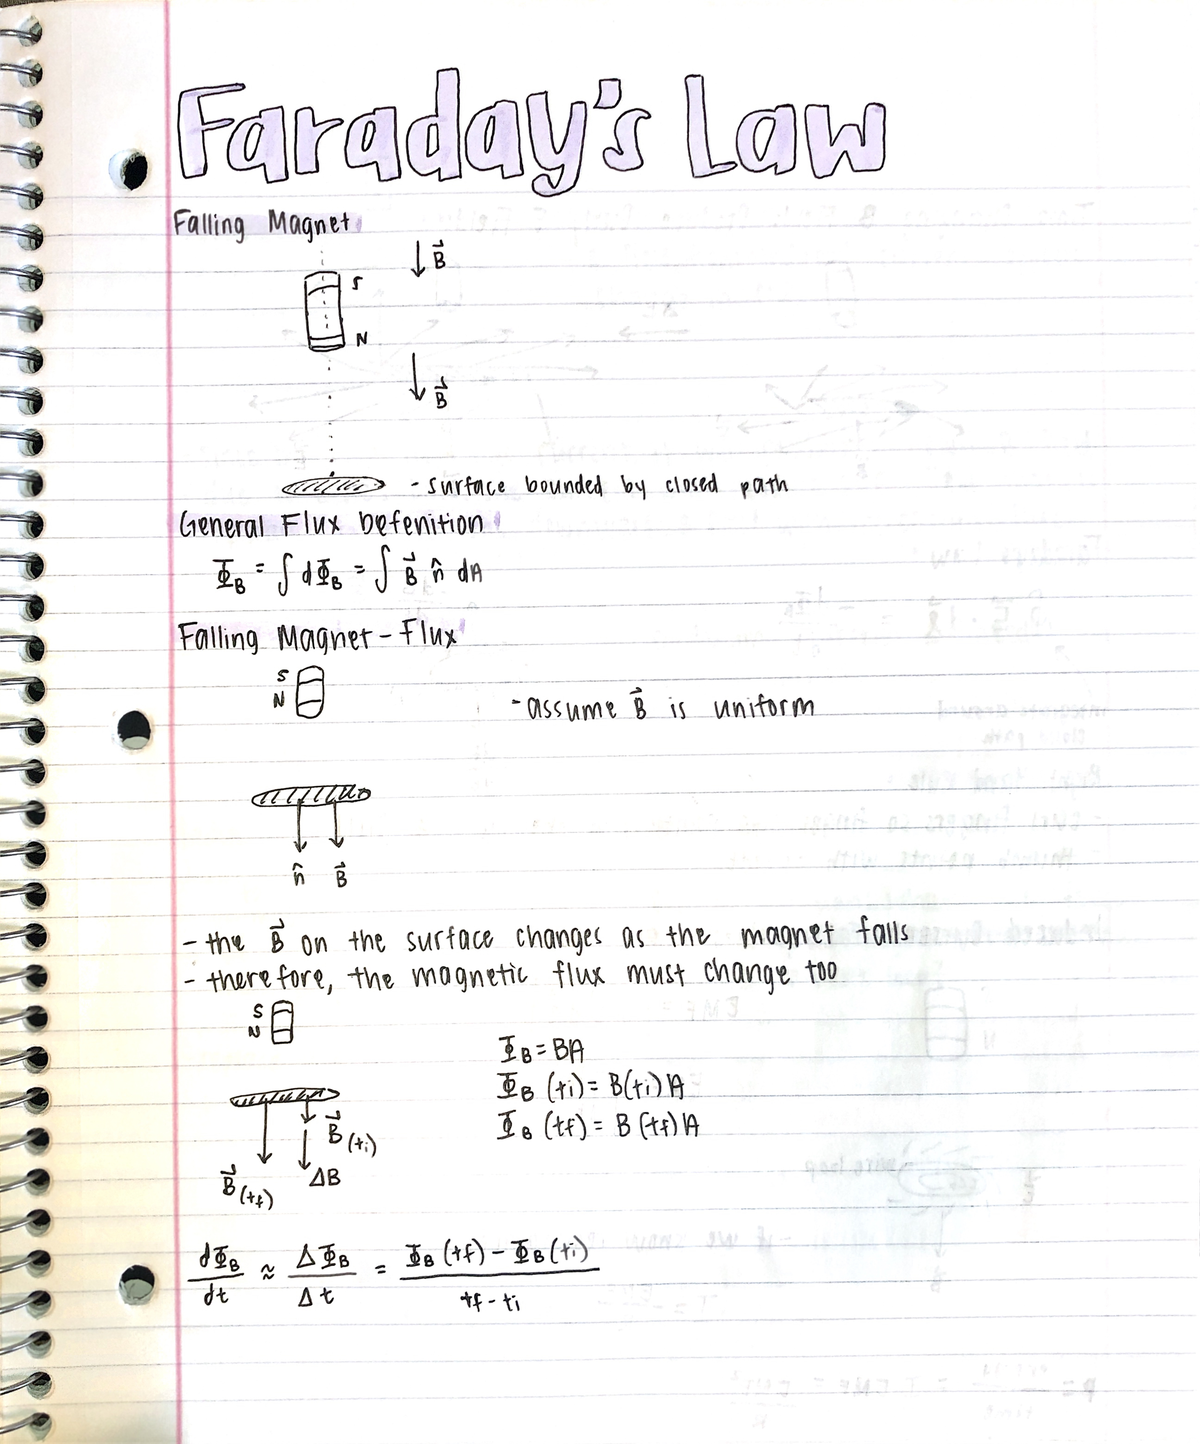 Faraday's Law
Falling Magnet
↓ B⃗
S
N
↓ B⃗
- surface bounded by closed path
General Flux Defenition
Φ_B = ∫ dΦ_B = ∫ B⃗ n̂ dA
Falling Magnet - Flux
S
N
- assume B⃗ is uniform
n̂ B⃗
- the B⃗ on the surface changes as the magnet falls
- therefore, the magnetic flux must change too
S
N
Φ_B = BA
Φ_B (ti) = B(ti) A
Φ_B (tf) = B (tf) A
B⃗ (ti)
ΔB
B⃗ (tf)
dΦ_B/dt ≈ ΔΦ_B/Δt = Φ_B (tf) - Φ_B (ti) / tf - ti